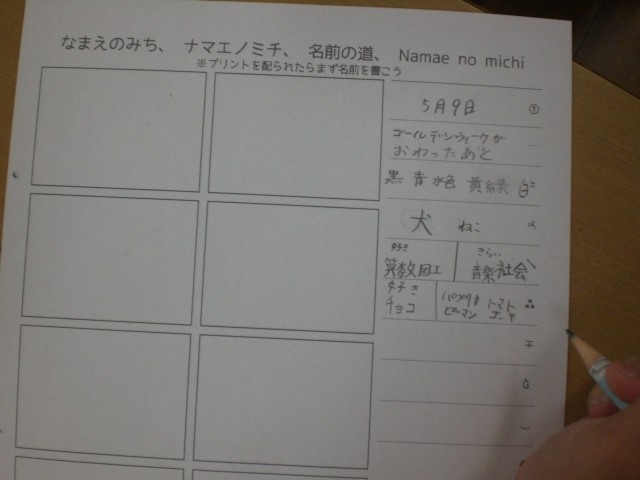 なまえのみち、 ナマエノミチ、 名前の道、 Namae no michi
※プリントを配られたらまず名前を書こう
5月9日 ①
ゴールデンウィークが
おわったあと
黒 青 水色 黄緑 白
犬 ねこ
好き きらい
算数図工 音楽社会
好き
チョコ ピーマン トマト